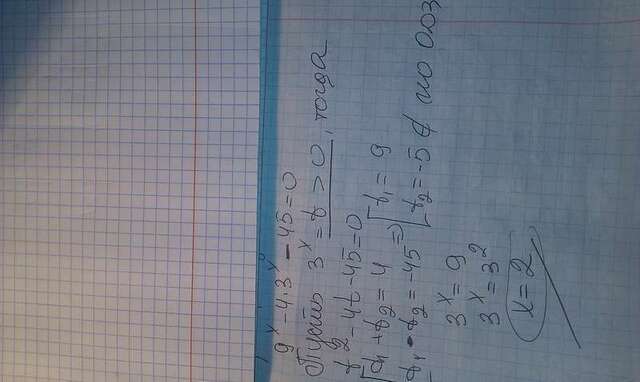 9^x - 4·3^x - 45 = 0
Пусть 3^x = t > 0, тогда
t^2 - 4t - 45 = 0
[t₁ + t₂ = 4 [t₁ = 9
t₁ · t₂ = -45 => [t₂ = -5 ∉ по ОДЗ
3^x = 9
3^x = 3^2
x = 2